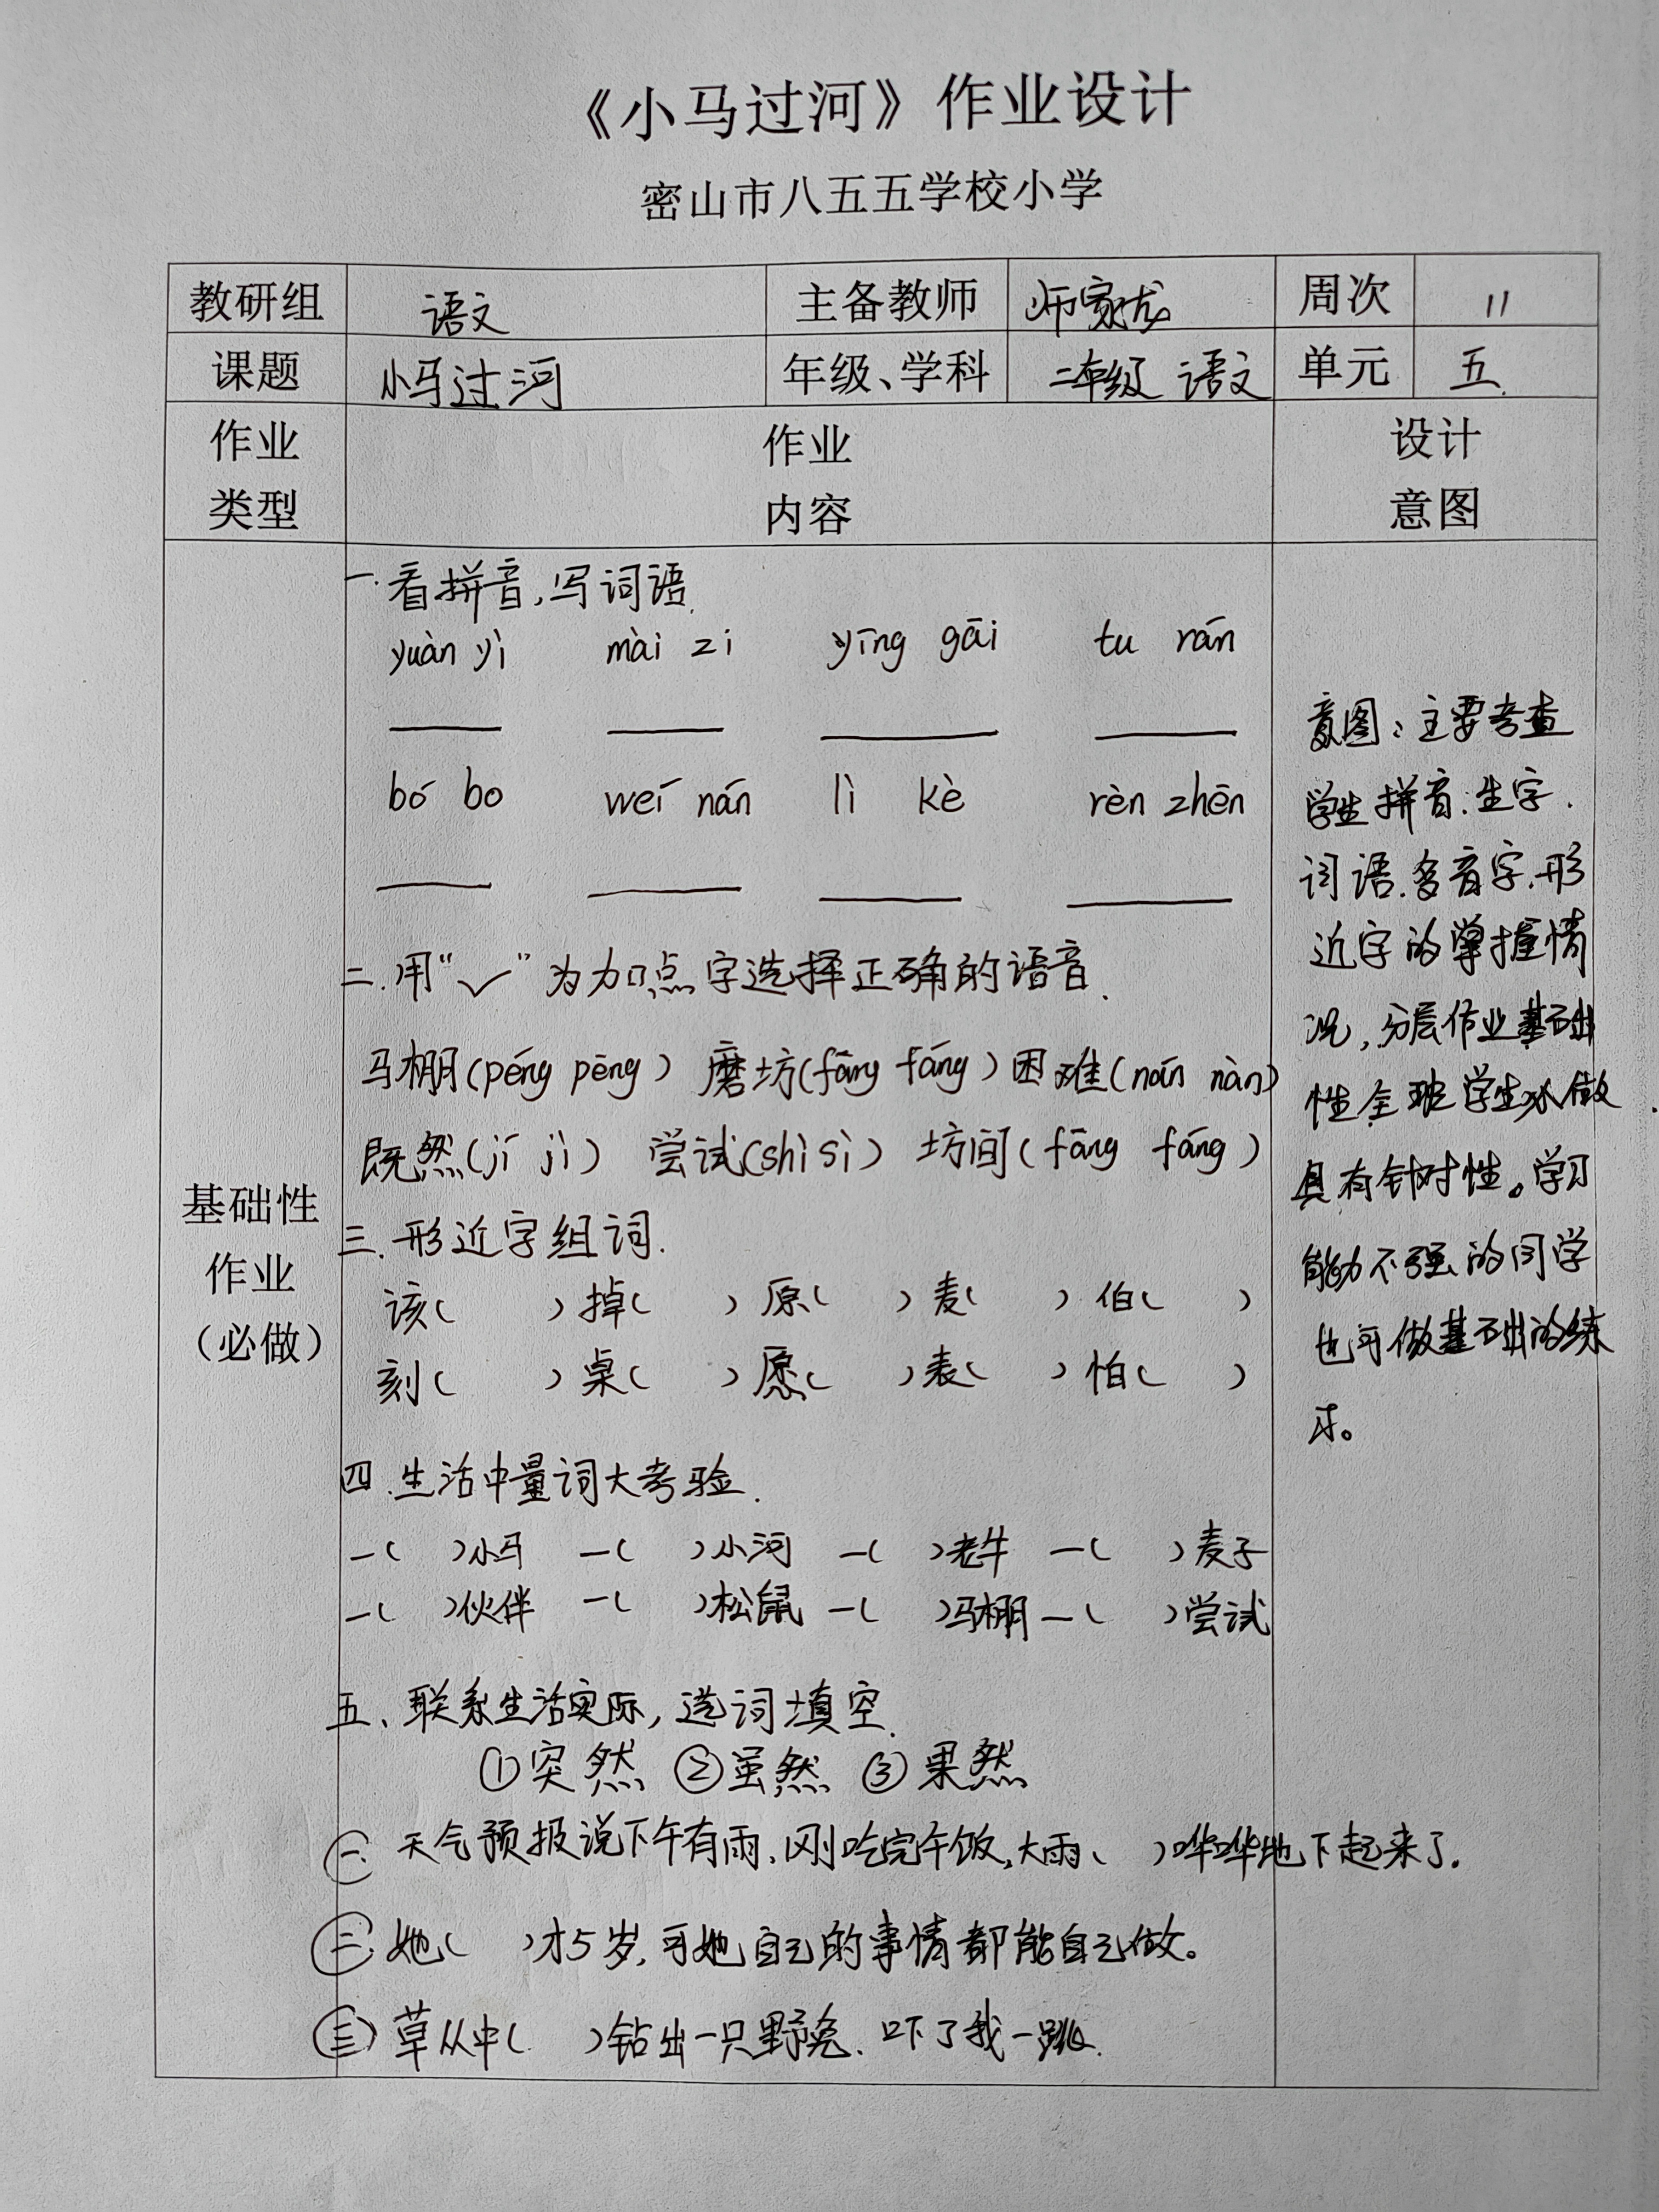 《小马过河》作业设计
密山市八五五学校小学
教研组 语文 主备教师 师家龙 周次 11
课题 小马过河 年级、学科 二年级 语文 单元 五
作业类型 作业内容 设计意图
基础性作业（必做）
一.看拼音,写词语.
yuàn yì mài zi yīng gāi tu rán
bó bo weí nán lì kè rèn zhēn
二.用“✓”为加点字选择正确的语音.
马棚(péng pēng) 磨坊(fāng fáng) 困难(nán nàn)
既然(jí jì) 尝试(shì sì) 坊间(fāng fáng)
三.形近字组词.
该( ) 掉( ) 原( ) 麦( ) 伯( )
刻( ) 桌( ) 愿( ) 表( ) 怕( )
四.生活中量词大考验.
一( )小马 一( )小河 一( )老牛 一( )麦子
一( )伙伴 一( )松鼠 一( )马棚 一( )尝试
五、联系生活实际,选词填空.
①突然 ②虽然 ③果然
㊀天气预报说下午有雨,刚吃完午饭,大雨( )哗哗地下起来了.
㊁她( )才5岁,可她自己的事情都能自己做。
㊂草从中( )钻出一只野兔.吓了我一跳.
意图:主要考查
学生拼音.生字.
词语.多音字.形
近字的掌握情
况,分层作业基础
性全班学生必做.
具有针对性。学习
能力不强的同学
也可做基础的练
习。